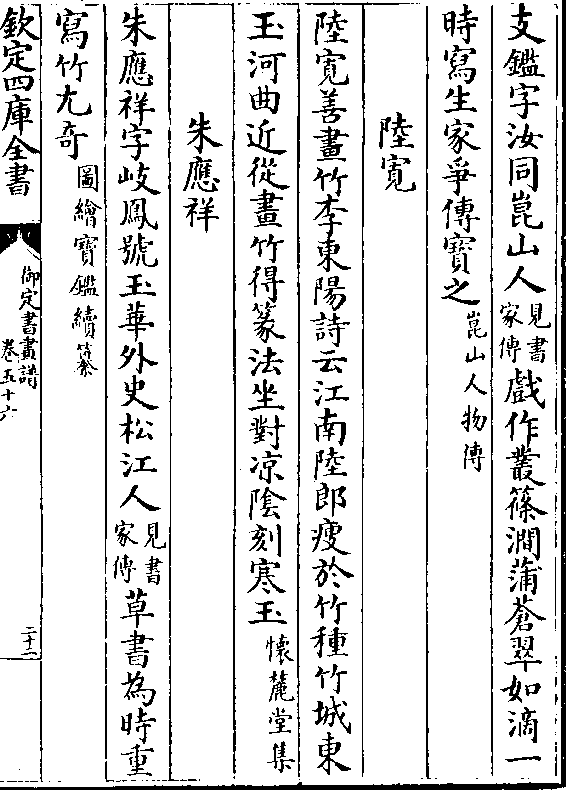 支鑑字汝同崑山人見書家傳戲作叢篠澗蒲蒼翠如滴一
時寫生家爭傳寶之崑山人物傳
陸寛
陸寛善畫竹李東陽詩云江南陸郎瘦於竹種竹城東
玉河曲近從畫竹得篆法坐對凉陰刻寒玉懷麓堂集
朱應祥
朱應祥字岐鳳號玉華外史松江人見書家傳草書為時重
寫竹尤奇圖繪寶鑑續纂
欽定四庫全書
御定書畫譜
卷五十六
二十二